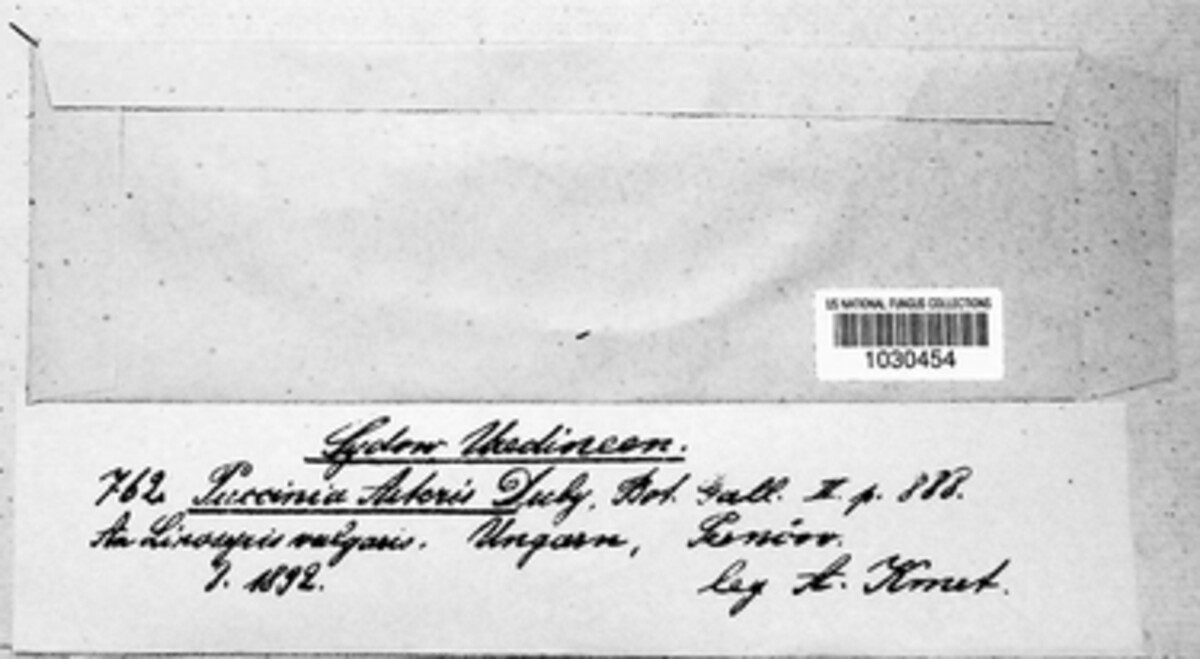 US NATIONAL FUNGUS COLLECTIONS
1030454
Sydow, Uredineen.
762. Puccinia Asteris Duby, Bot. Gall. II p. 888.
An Linosyris vulgaris. Ungarn, Prenčow.
9. 1892. leg A. Kmet.